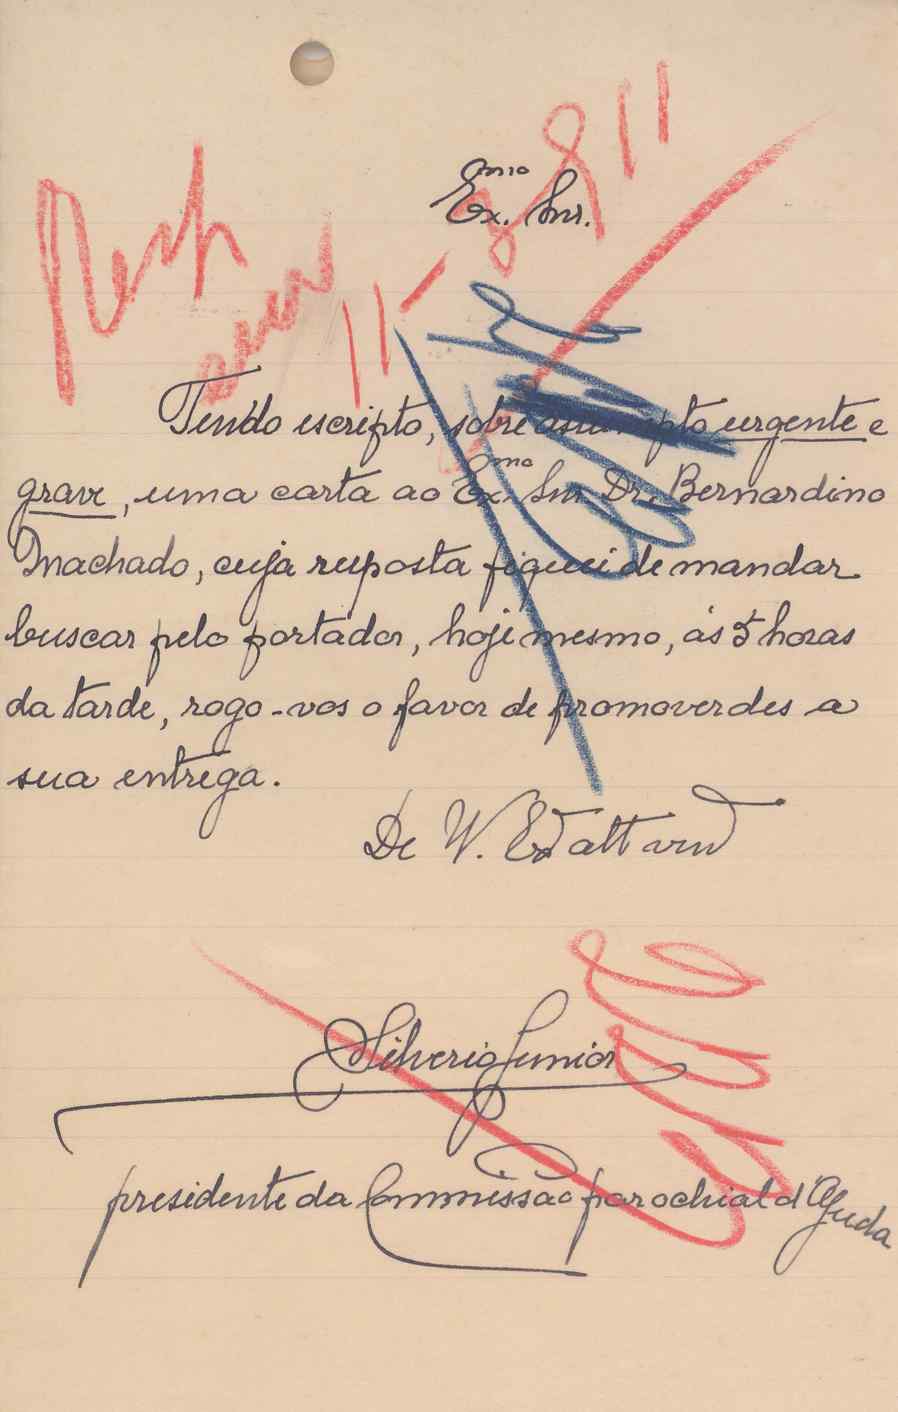 Exmo. Snr.
Resp
11-8-911
Tendo escripto, sobre assumpto urgente e
grave, uma carta ao Exmo. Snr. Dr. Bernardino
Machado, cuja resposta fiquei de mandar
buscar pelo portador, hoje mesmo, ás 5 horas
da tarde, rogo-vos o favor de promoverdes a
sua entrega.
De V. Exa
Silverio Junior
presidente da Commissão parochial d'Ajuda